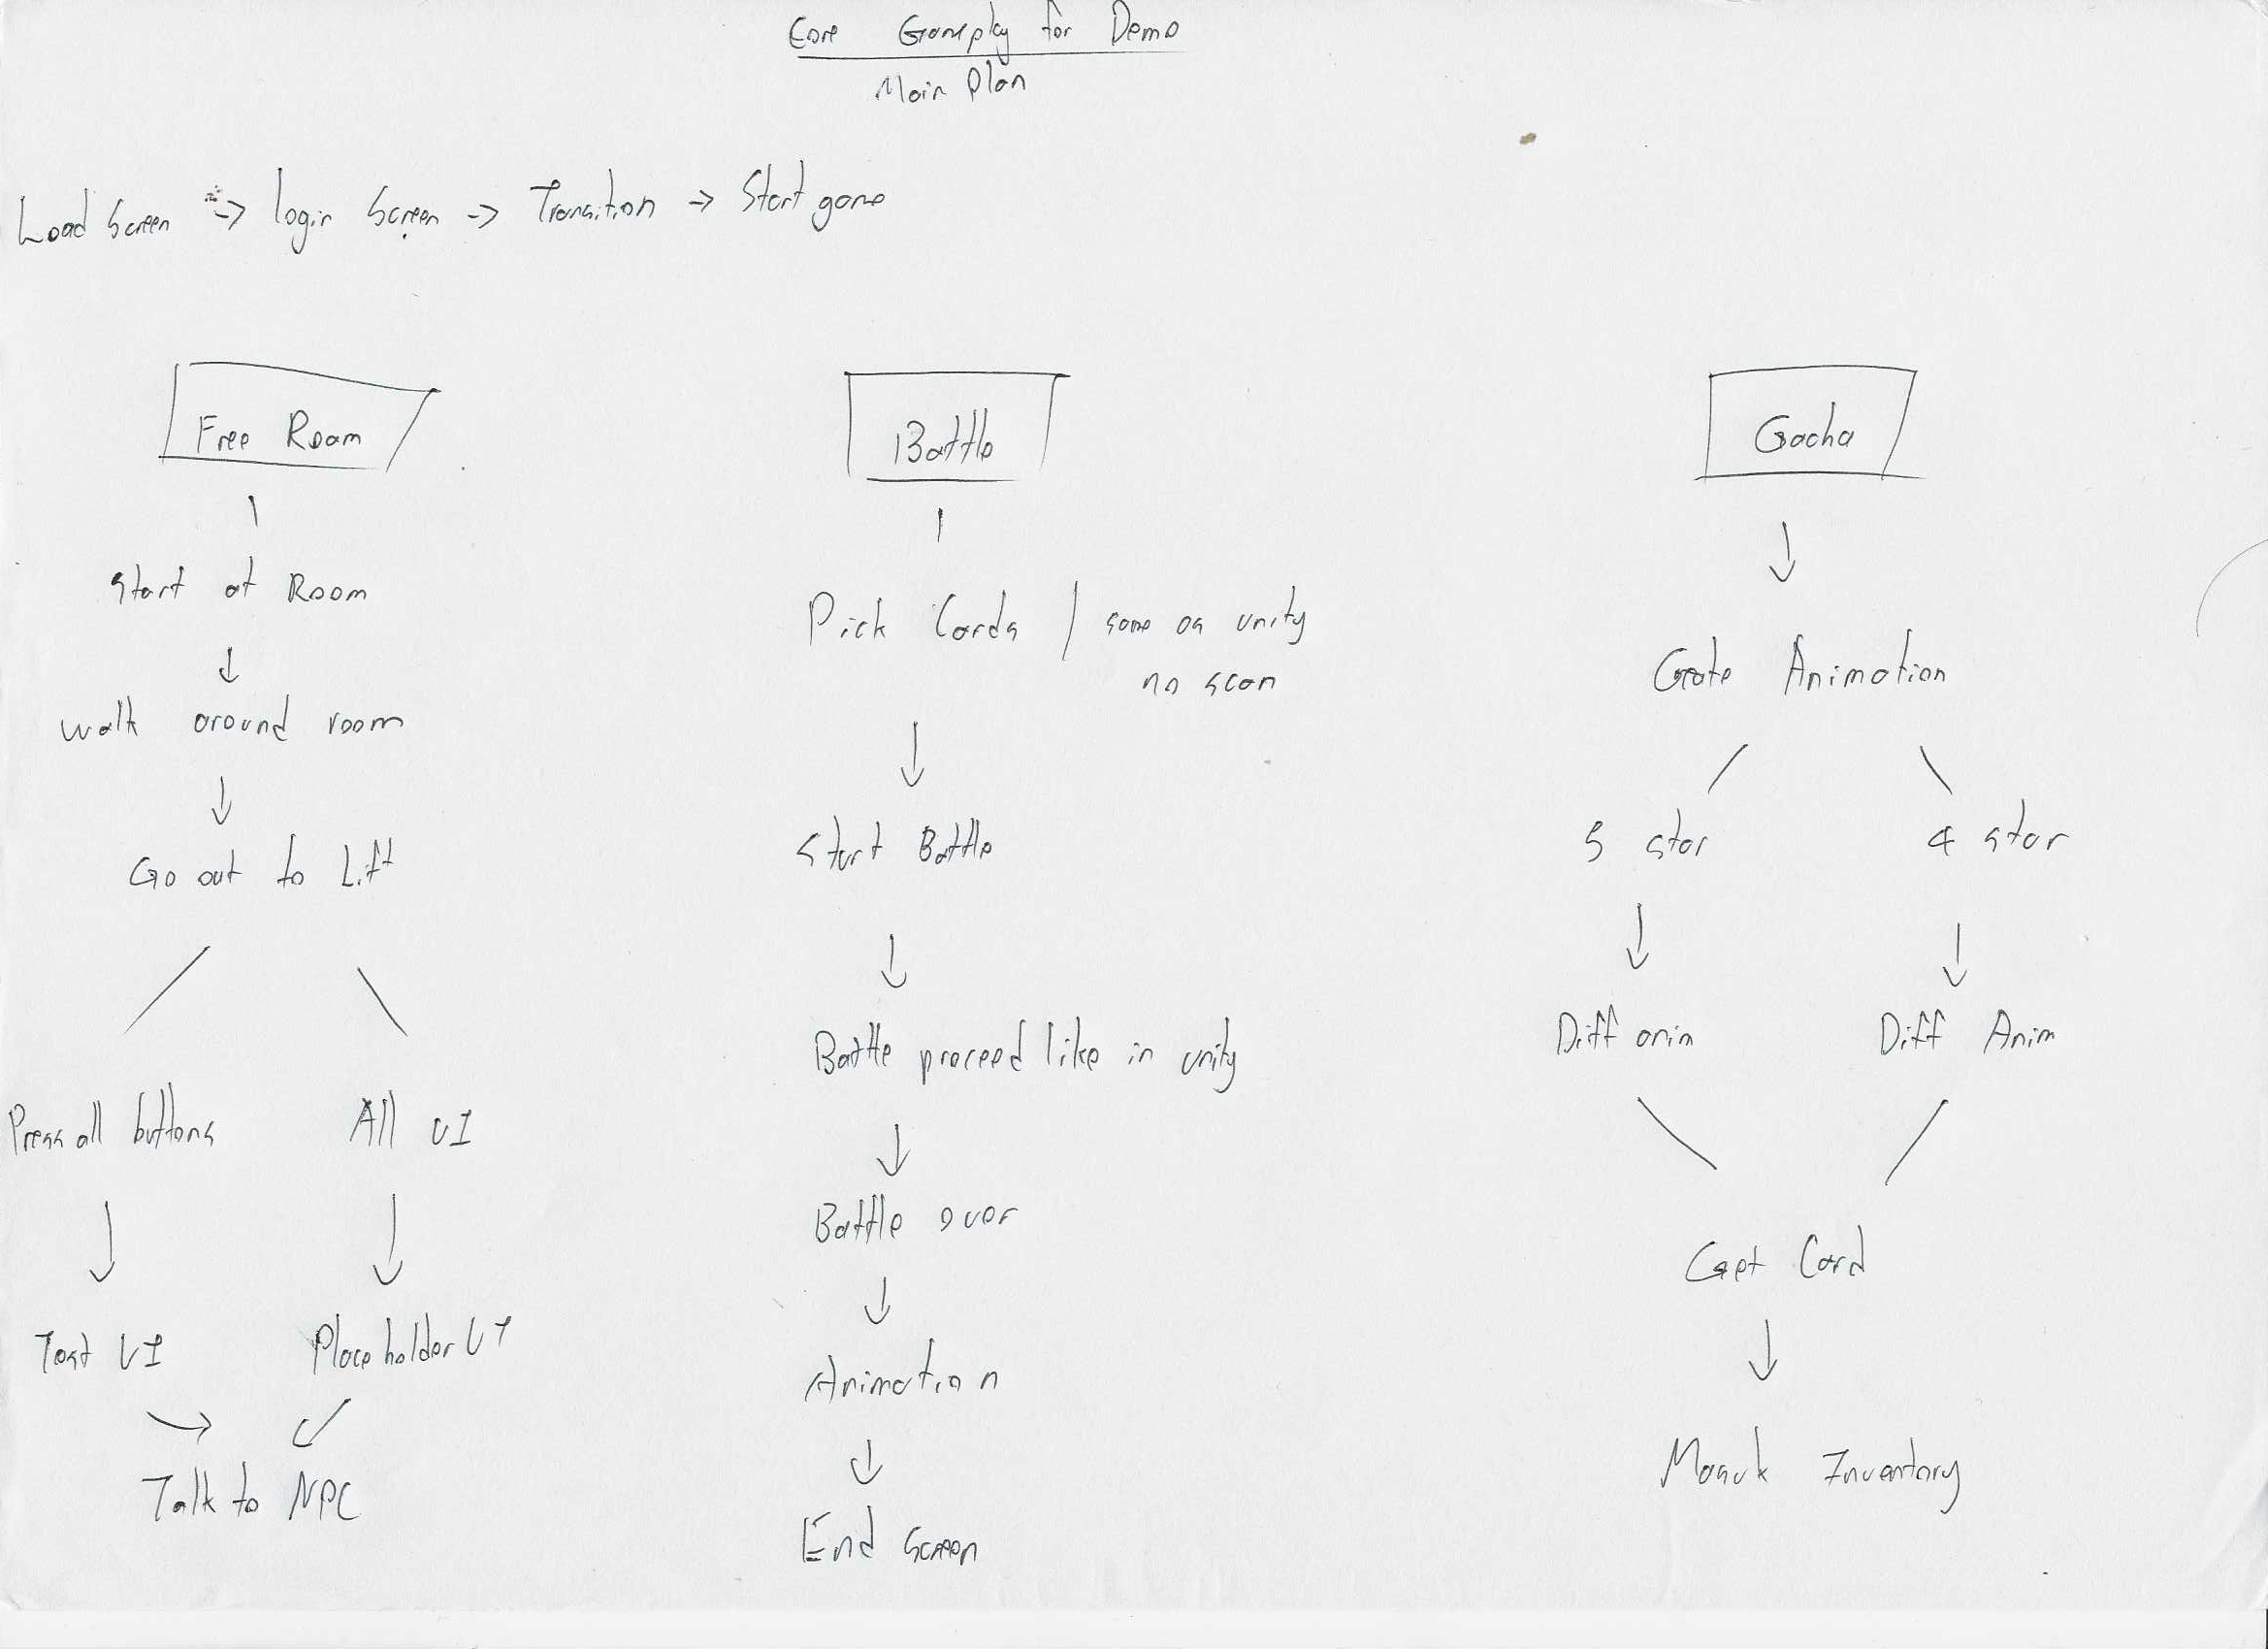 Core Gameplay for Demo
Main Plan
Load Screen -> login Screen -> Transition -> Start game
Free Roam
Start at Room
walk around room
Go out to Lift
Press all buttons
All UI
Test UI
Placeholder UI
Talk to NPC
Battle
Pick Cards / same as unity
no scan
Start Battle
Battle proceed like in unity
Battle over
Animation
End Screen
Gacha
Gate Animation
5 star
4 star
Diff anim
Diff Anim
Get Card
Masuk Inventory